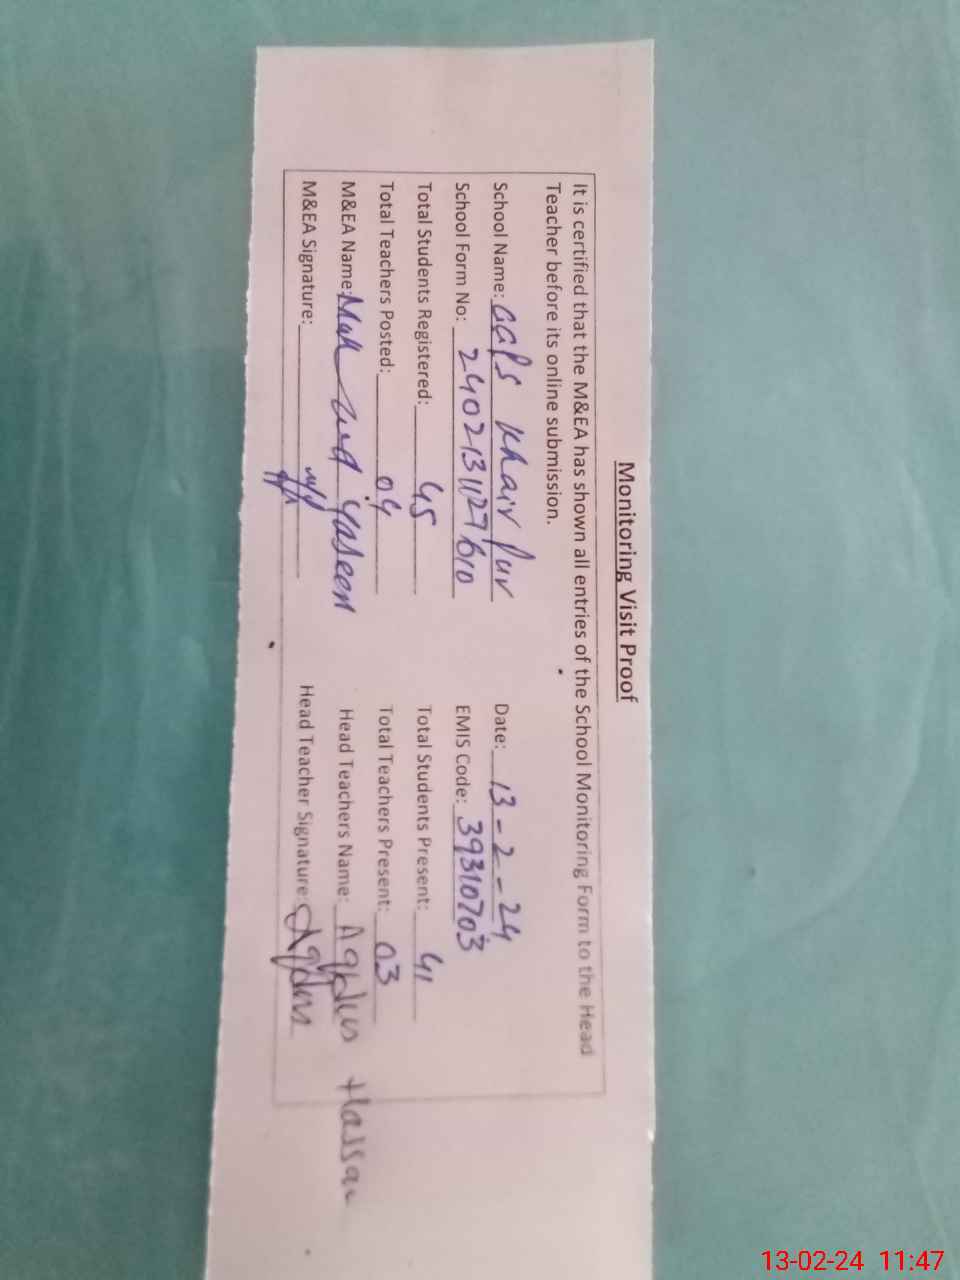 Monitoring Visit Proof
It is certified that the M&EA has shown all entries of the School Monitoring Form to the Head
Teacher before its online submission.
School Name: GGPS Khair Pur Date: 13-2-24
School Form No: 2402131127610 EMIS Code: 39310703
Total Students Registered: 45 Total Students Present: 41
Total Teachers Posted: 04 Total Teachers Present: 03
M&EA Name: Yaseen Head Teachers Name: Hassan
M&EA Signature: Head Teacher Signature:
13-02-24 11:47